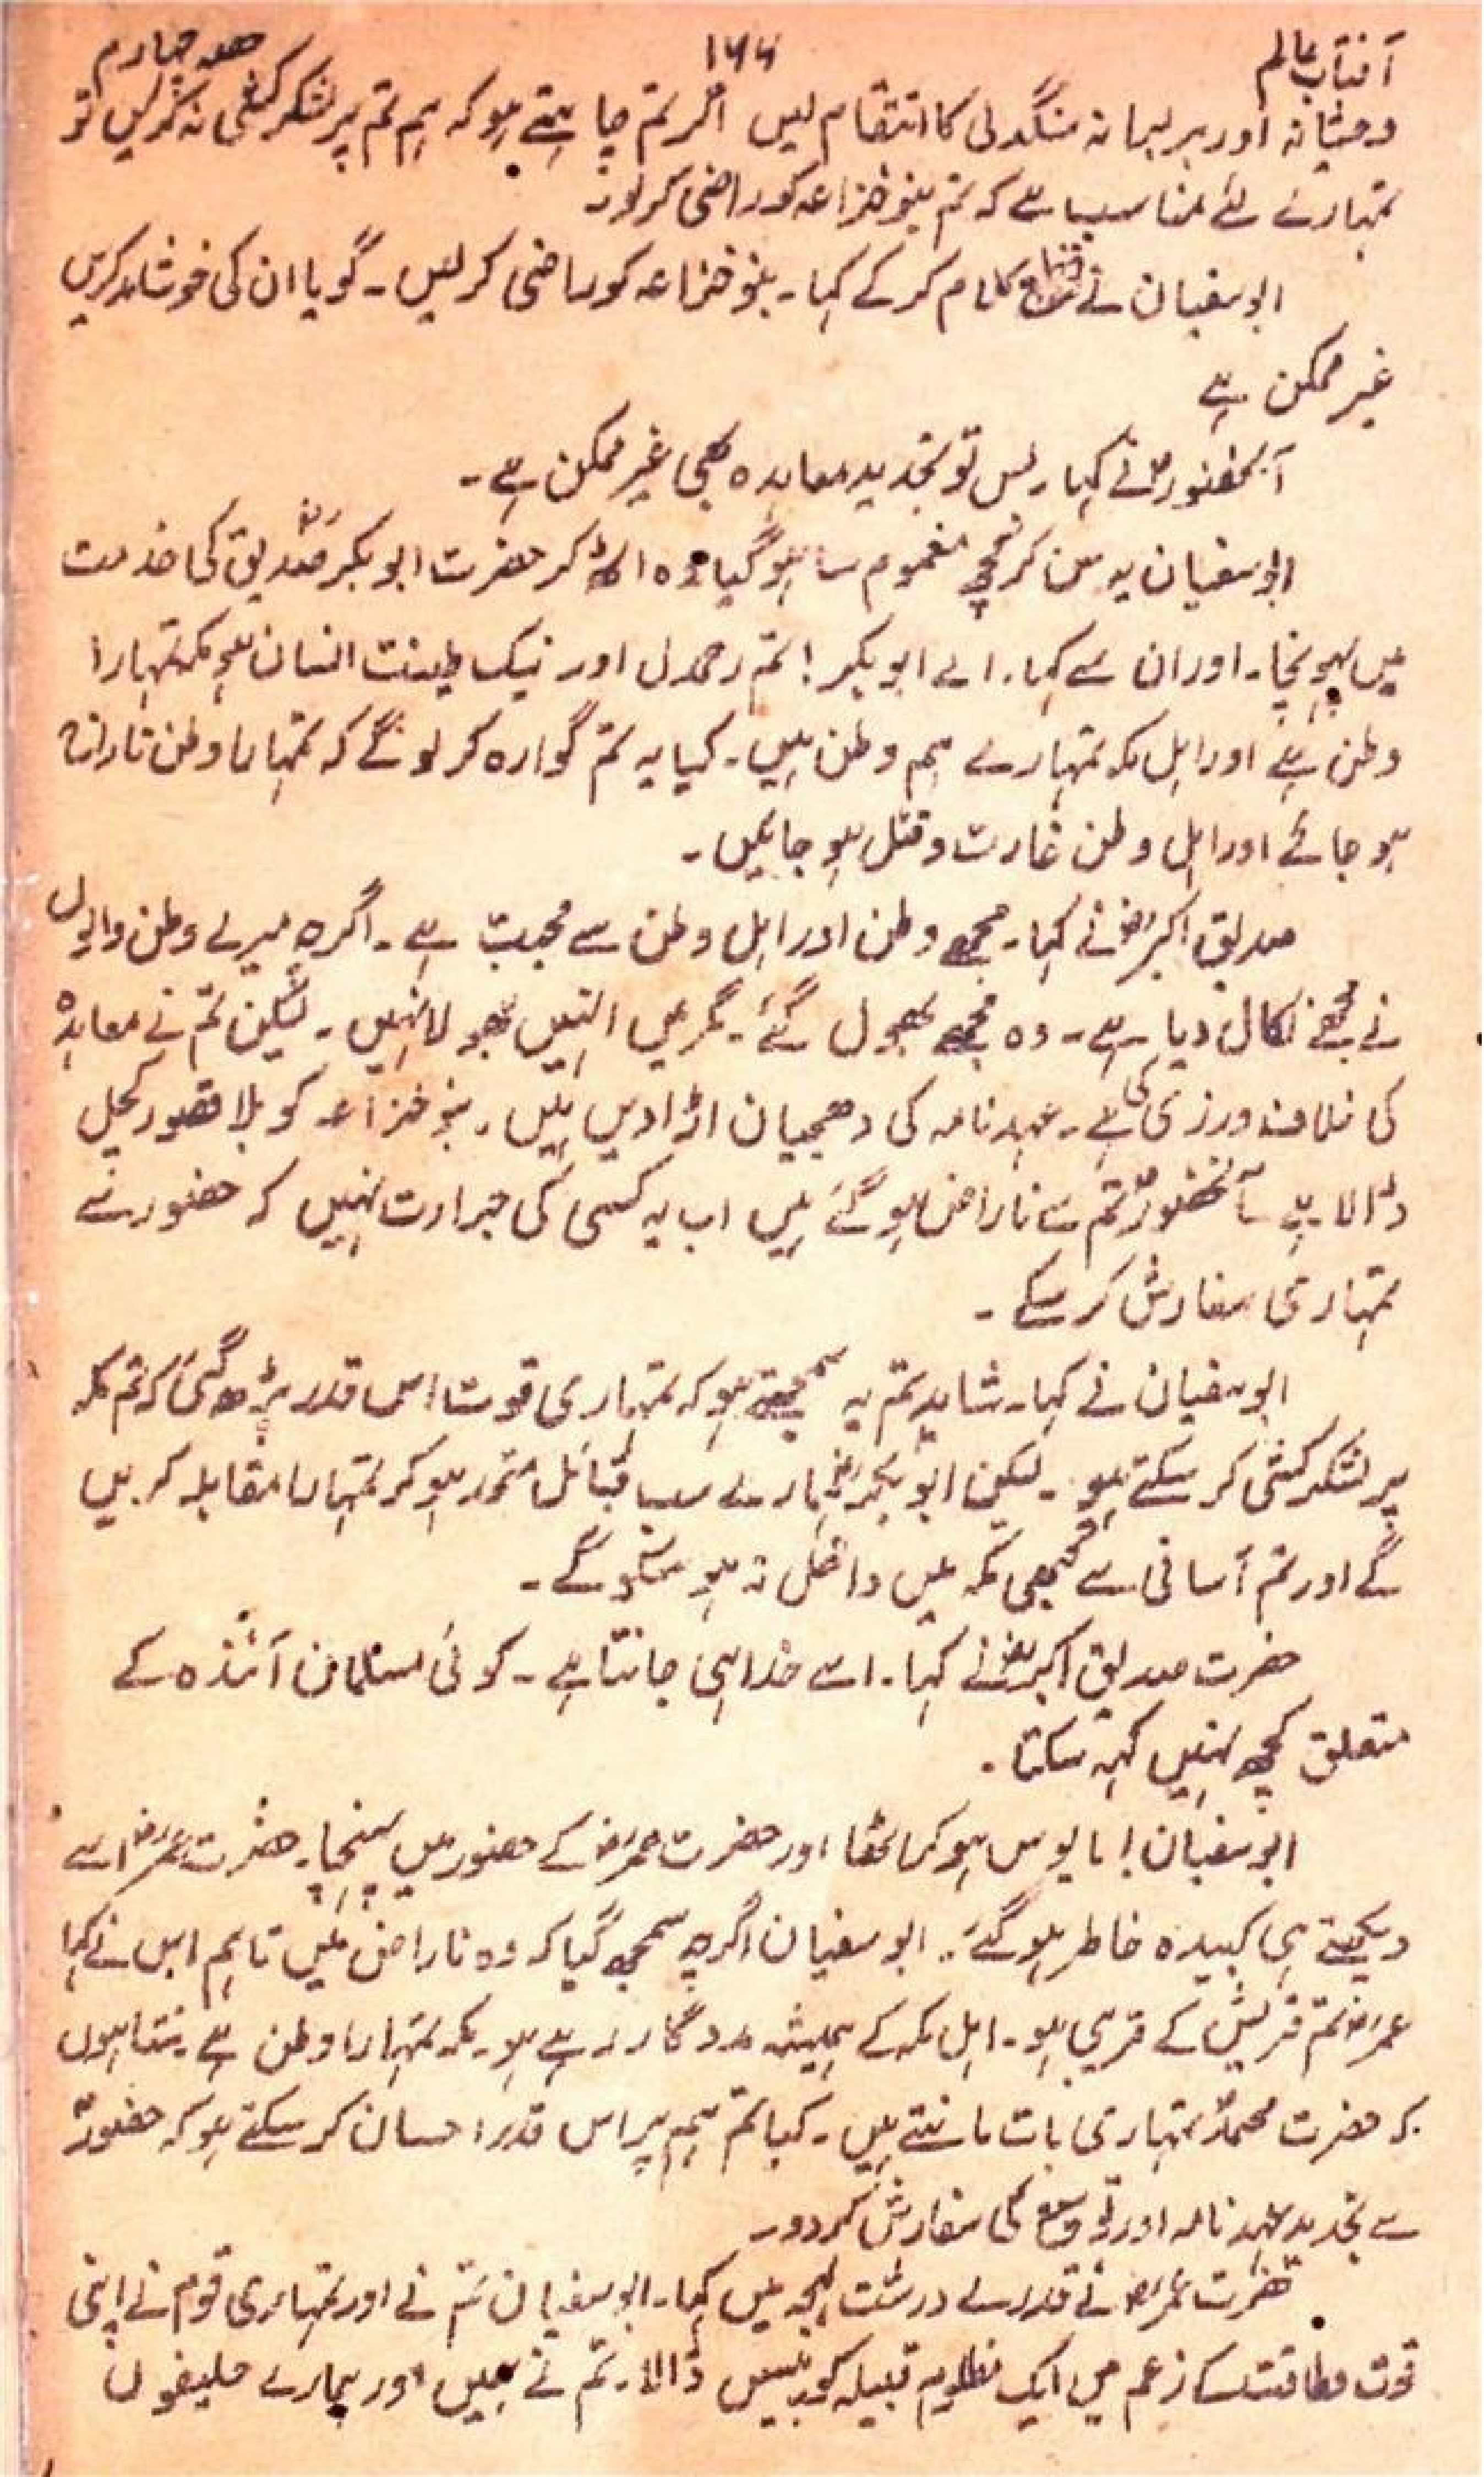 آفتاب عالم ۱۶۶ حصہ چہارم
وحشیانہ اور بربریانہ سنگدلی کا انتقام لیں اگر تم چاہتے ہو کہ ہم تم پر لشکر کشی نہ کریں تو
تمہارے لئے مناسب ہے کہ تم بنو خزاعہ کو راضی کر لو۔
ابو سفیان نے قطع کلام کر کے کہا۔ بنو خزاعہ کو راضی کر لیں۔ گویا ان کی خوشامد کریں
غیر ممکن ہے
آنحضورؐ نے کہا۔ بس تو تجدید معاہدہ بھی غیر ممکن ہے۔
ابو سفیان یہ سن کر کچھ مغموم سا ہو گیا وہ اٹھ کر حضرت ابو بکر صدیقؓ کی خدمت
میں پہونچا۔ اور ان سے کہا۔ اے ابو بکر! تم رحمدل اور نیک طینت انسان ہو مکہ تمہارا
وطن ہے اور اہل مکہ تمہارے ہم وطن ہیں۔ کیا یہ تم گوارہ کر لو گے کہ تمہارا وطن تاراج
ہو جائے اور اہل وطن غارت و قتل ہو جائیں۔
صدیق اکبرؓ نے کہا۔ مجھے وطن اور اہل وطن سے محبت ہے۔ اگرچہ میرے وطن والوں
نے مجھے نکال دیا ہے۔ وہ مجھے بھول گئے۔ مگر میں انہیں بھولا نہیں۔ لیکن تم نے معاہدہ
کی خلاف ورزی کی ہے۔ عہد نامہ کی دھجیان اڑا دیں ہیں۔ بنو خزاعہ کو بلا قصور کچل
ڈالا ہے آنحضورؐ تم سے ناراض ہو گئے ہیں اب یہ کسی کی جرارت نہیں کہ حضور سے
تمہاری سفارش کر سکے۔
ابو سفیان نے کہا۔ شاید تم یہ سمجھتے ہو کہ تمہاری قوت اس قدر بڑھ گئی کہ تم مکہ
پر لشکر کشی کر سکتے ہو۔ لیکن ابو بکرؓ ہمارے سب قبائل متحد ہو کر تمہارا مقابلہ کریں
گے اور تم آسانی سے کبھی مکہ میں داخل نہ ہو سکو گے۔
حضرت صدیق اکبرؓ نے کہا۔ اسے خدا ہی جانتا ہے۔ کوئی مسلمان آئندہ کے
متعلق کچھ نہیں کہہ سکتا۔
ابو سفیان مایوس ہو کر اٹھا اور حضرت عمرؓ کے حضور میں پہنچا۔ حضرت عمرؓ اسے
دیکھتے ہی کبیدہ خاطر ہو گئے۔ ابو سفیان اگرچہ سمجھ گیا کہ وہ ناراض ہیں تاہم اس نے کہا
عمرؓ تم قریش کے قریبی ہو۔ اہل مکہ کے ہمیشہ مددگار رہے ہو۔ مکہ تمہارا وطن ہے سنتا ہوں
کہ حضرت محمدؐ تمہاری بات مانتے ہیں۔ کیا تم ہم پر اس قدر احسان کر سکتے ہو کہ حضورؐ
سے تجدید عہد نامہ اور توسیع کی سفارش کر دو۔
حضرت عمرؓ نے قدرے درشت لہجہ میں کہا۔ ابو سفیان تم نے اور تمہاری قوم نے اپنی
قوت و طاقت کے زعم میں ایک مظلوم قبیلہ کو پیس ڈالا۔ تم نے ہمیں اور ہمارے حلیفوں